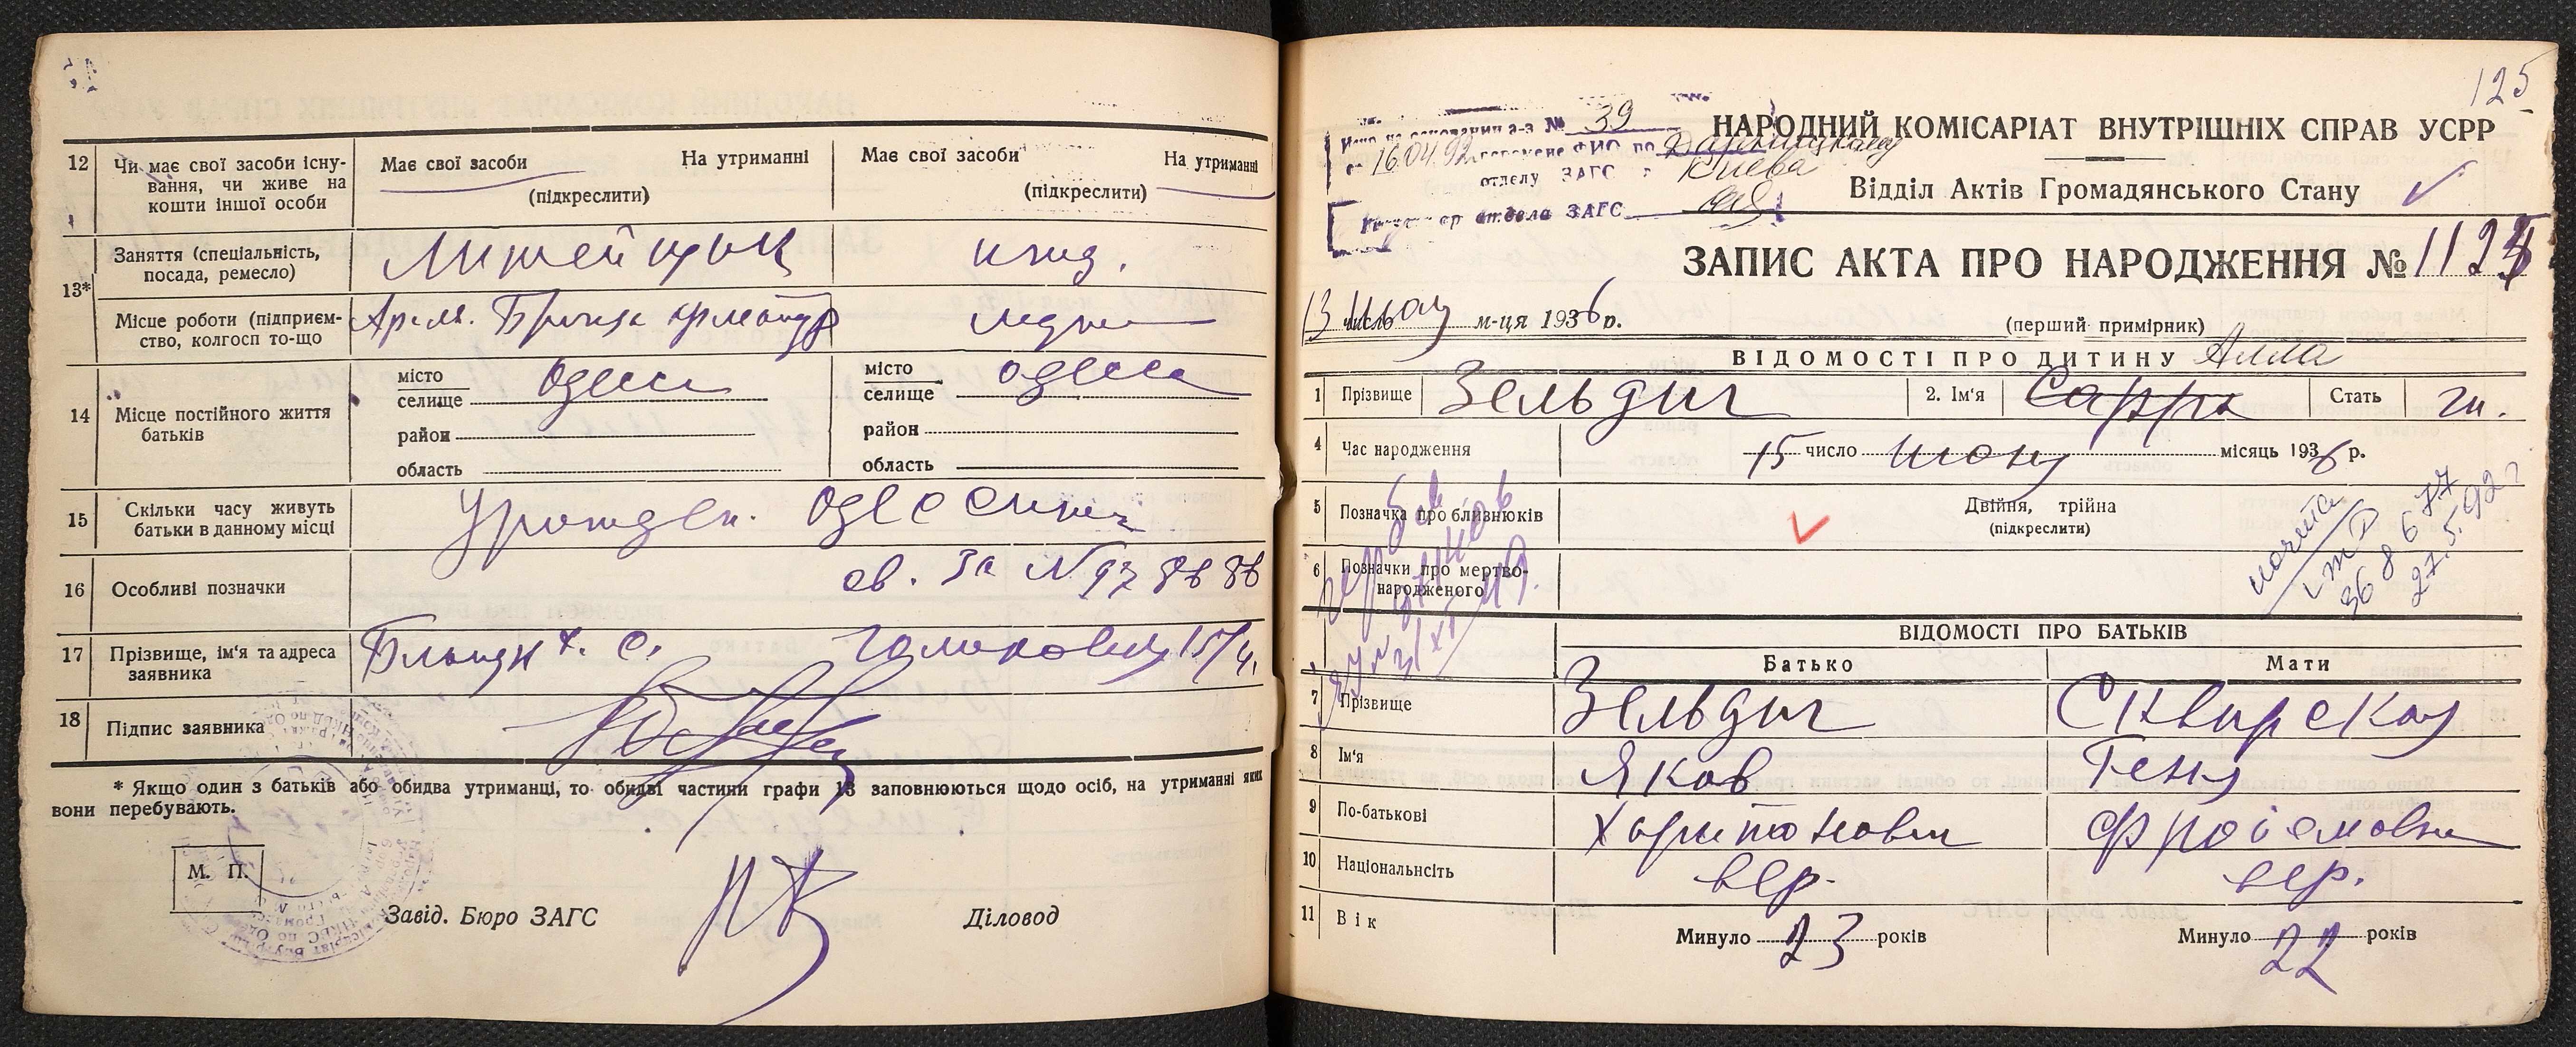 12 Чи має свої засоби існу-
вання, чи живе на
кошти іншої особи
Має свої засоби На утриманні
(підкреслити)
Має свої засоби На утриманні
(підкреслити)
13*
Заняття (спеціальність,
посада, ремесло)
Литейщик
ижд.
Місце роботи (підприєм-
ство, колгосп то-що
мужа
14 Місце постійного життя
батьків
місто
селище Одесса
район
область
місто
селище Одесса
район
область
15 Скільки часу живуть
батьки в данному місці
Урожден. Одессит
16 Особливі позначки
св. За №
17 Прізвище, ім'я та адреса
заявника
15/
18 Підпис заявника
* Якщо один з батьків або обидва утриманці, то обидві частини графи 13 заповнюються щодо осіб, на утриманні яких
вони перебувають.
М. П.
Завід. Бюро ЗАГС
Діловод
125
№ 39
16.04.92 ФИО по Дарницкому
отделу ЗАГС г Киева
отдела ЗАГС
НАРОДНИЙ КОМІСАРІАТ ВНУТРІШНІХ СПРАВ УСРР
Відділ Актів Громадянського Стану
ЗАПИС АКТА ПРО НАРОДЖЕННЯ № 112
13 число м-ця 1936 р.
(перший примірник)
ВІДОМОСТІ ПРО ДИТИНУ Алла
1 Прізвище Зельдич 2. Ім'я Сарра Стать ж.
4 Час народження 15 число июня місяць 1936 р.
5 Позначка про близнюків
Двійня, трійна
(підкреслити)
6 Позначки про мертво-
народженого
27.5.92
ВІДОМОСТІ ПРО БАТЬКІВ
Батько Мати
7 Прізвище Зельдич Сквирская
8 Ім'я Яков Геня
9 По-батькові Харитонович Фроимовна
10 Національність евр. евр.
11 Вік Минуло 23 років Минуло 22 років